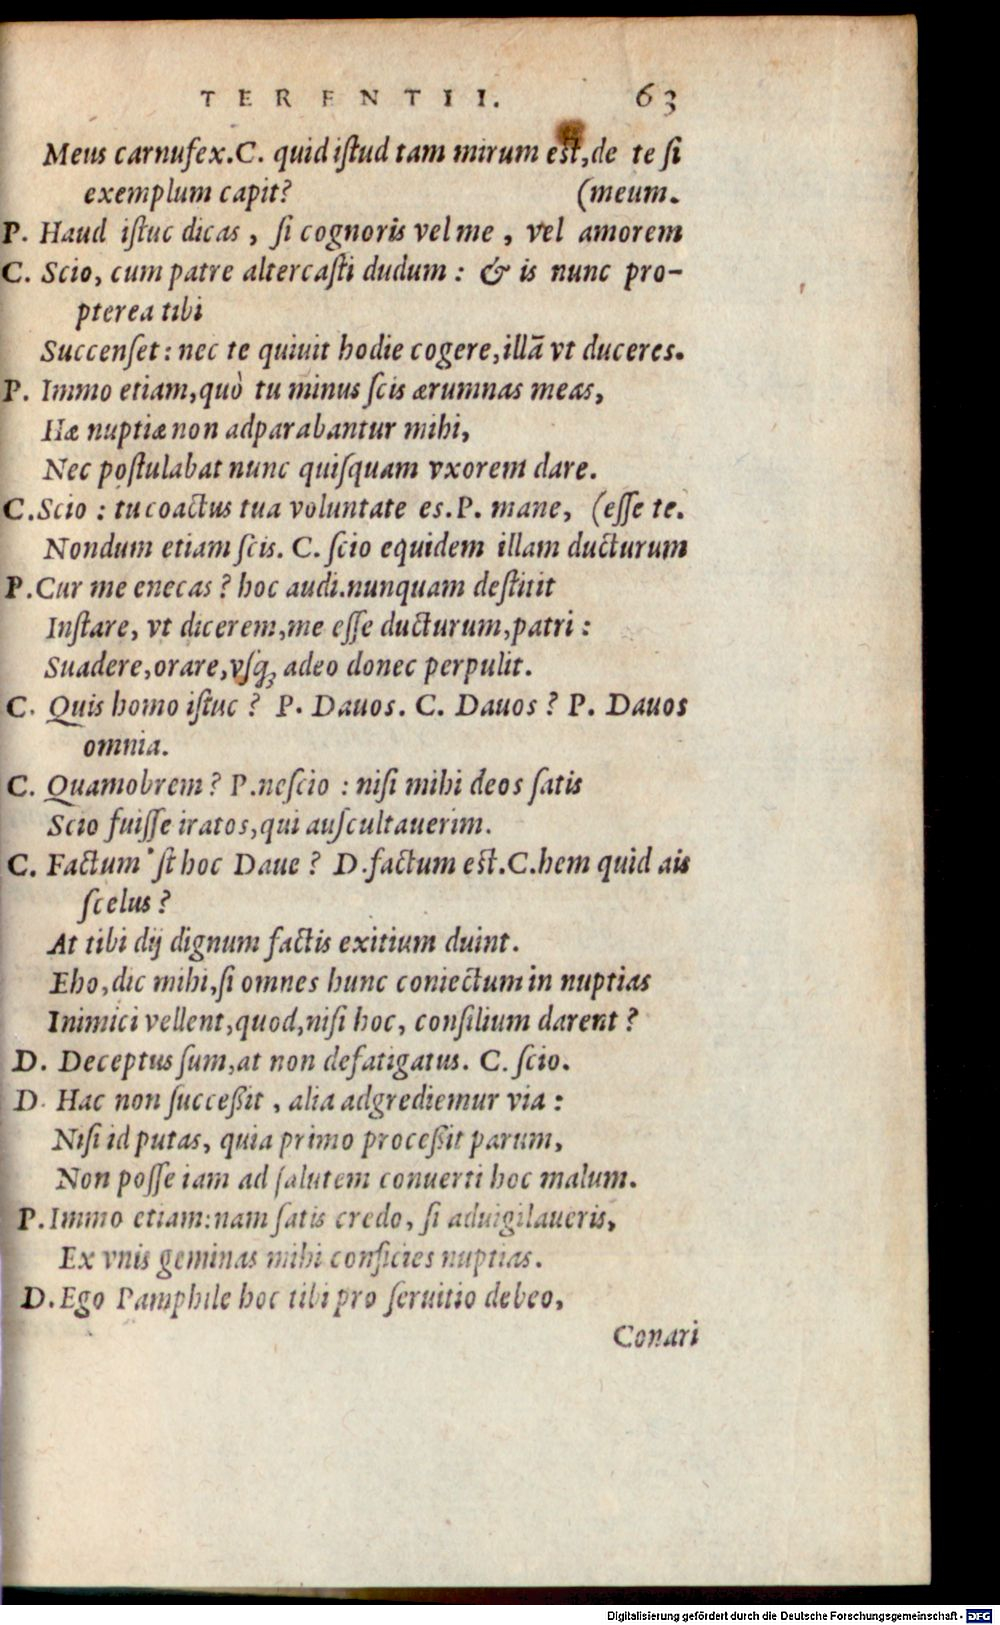 TERENTII. 63
Meus carnufex. C. quid iſtud tam mirum eſt, de te ſi
exemplum capit? (meum.
P. Haud iſtuc dicas, ſi cognoris vel me, vel amorem
C. Scio, cum patre altercaſti dudum: & is nunc pro-
pterea tibi
Succenſet: nec te quiuit hodie cogere, illā vt duceres.
P. Immo etiam, quò tu minus ſcis ærumnas meas,
Hæ nuptiæ non adparabantur mihi,
Nec poſtulabat nunc quiſquam vxorem dare.
C. Scio: tu coactus tua voluntate es. P. mane, (eſſe te.
Nondum etiam ſcis. C. ſcio equidem illam ducturum
P. Cur me enecas? hoc audi. nunquam deſtitit
Inſtare, vt dicerem, me eſſe ducturum, patri:
Suadere, orare, vſq; adeo donec perpulit.
C. Quis homo iſtuc? P. Dauos. C. Dauos? P. Dauos
omnia.
C. Quamobrem? P. neſcio: niſi mihi deos ſatis
Scio fuiſſe iratos, qui auſcultauerim.
C. Factum 'ſt hoc Daue? D. factum eſt. C. hem quid ais
ſcelus?
At tibi dij dignum factis exitium duint.
Eho, dic mihi, ſi omnes hunc coniectum in nuptias
Inimici vellent, quod, niſi hoc, conſilium darent?
D. Deceptus ſum, at non defatigatus. C. ſcio.
D. Hac non ſucceßit, alia adgrediemur via:
Niſi id putas, quia primo proceßit parum,
Non poſſe iam ad ſalutem conuerti hoc malum.
P. Immo etiam: nam ſatis credo, ſi aduigilaueris,
Ex vnis geminas mihi conficies nuptias.
D. Ego Pamphile hoc tibi pro ſeruitio debeo,
Conari
Digitalisierung gefördert durch die Deutsche Forschungsgemeinschaft - DFG